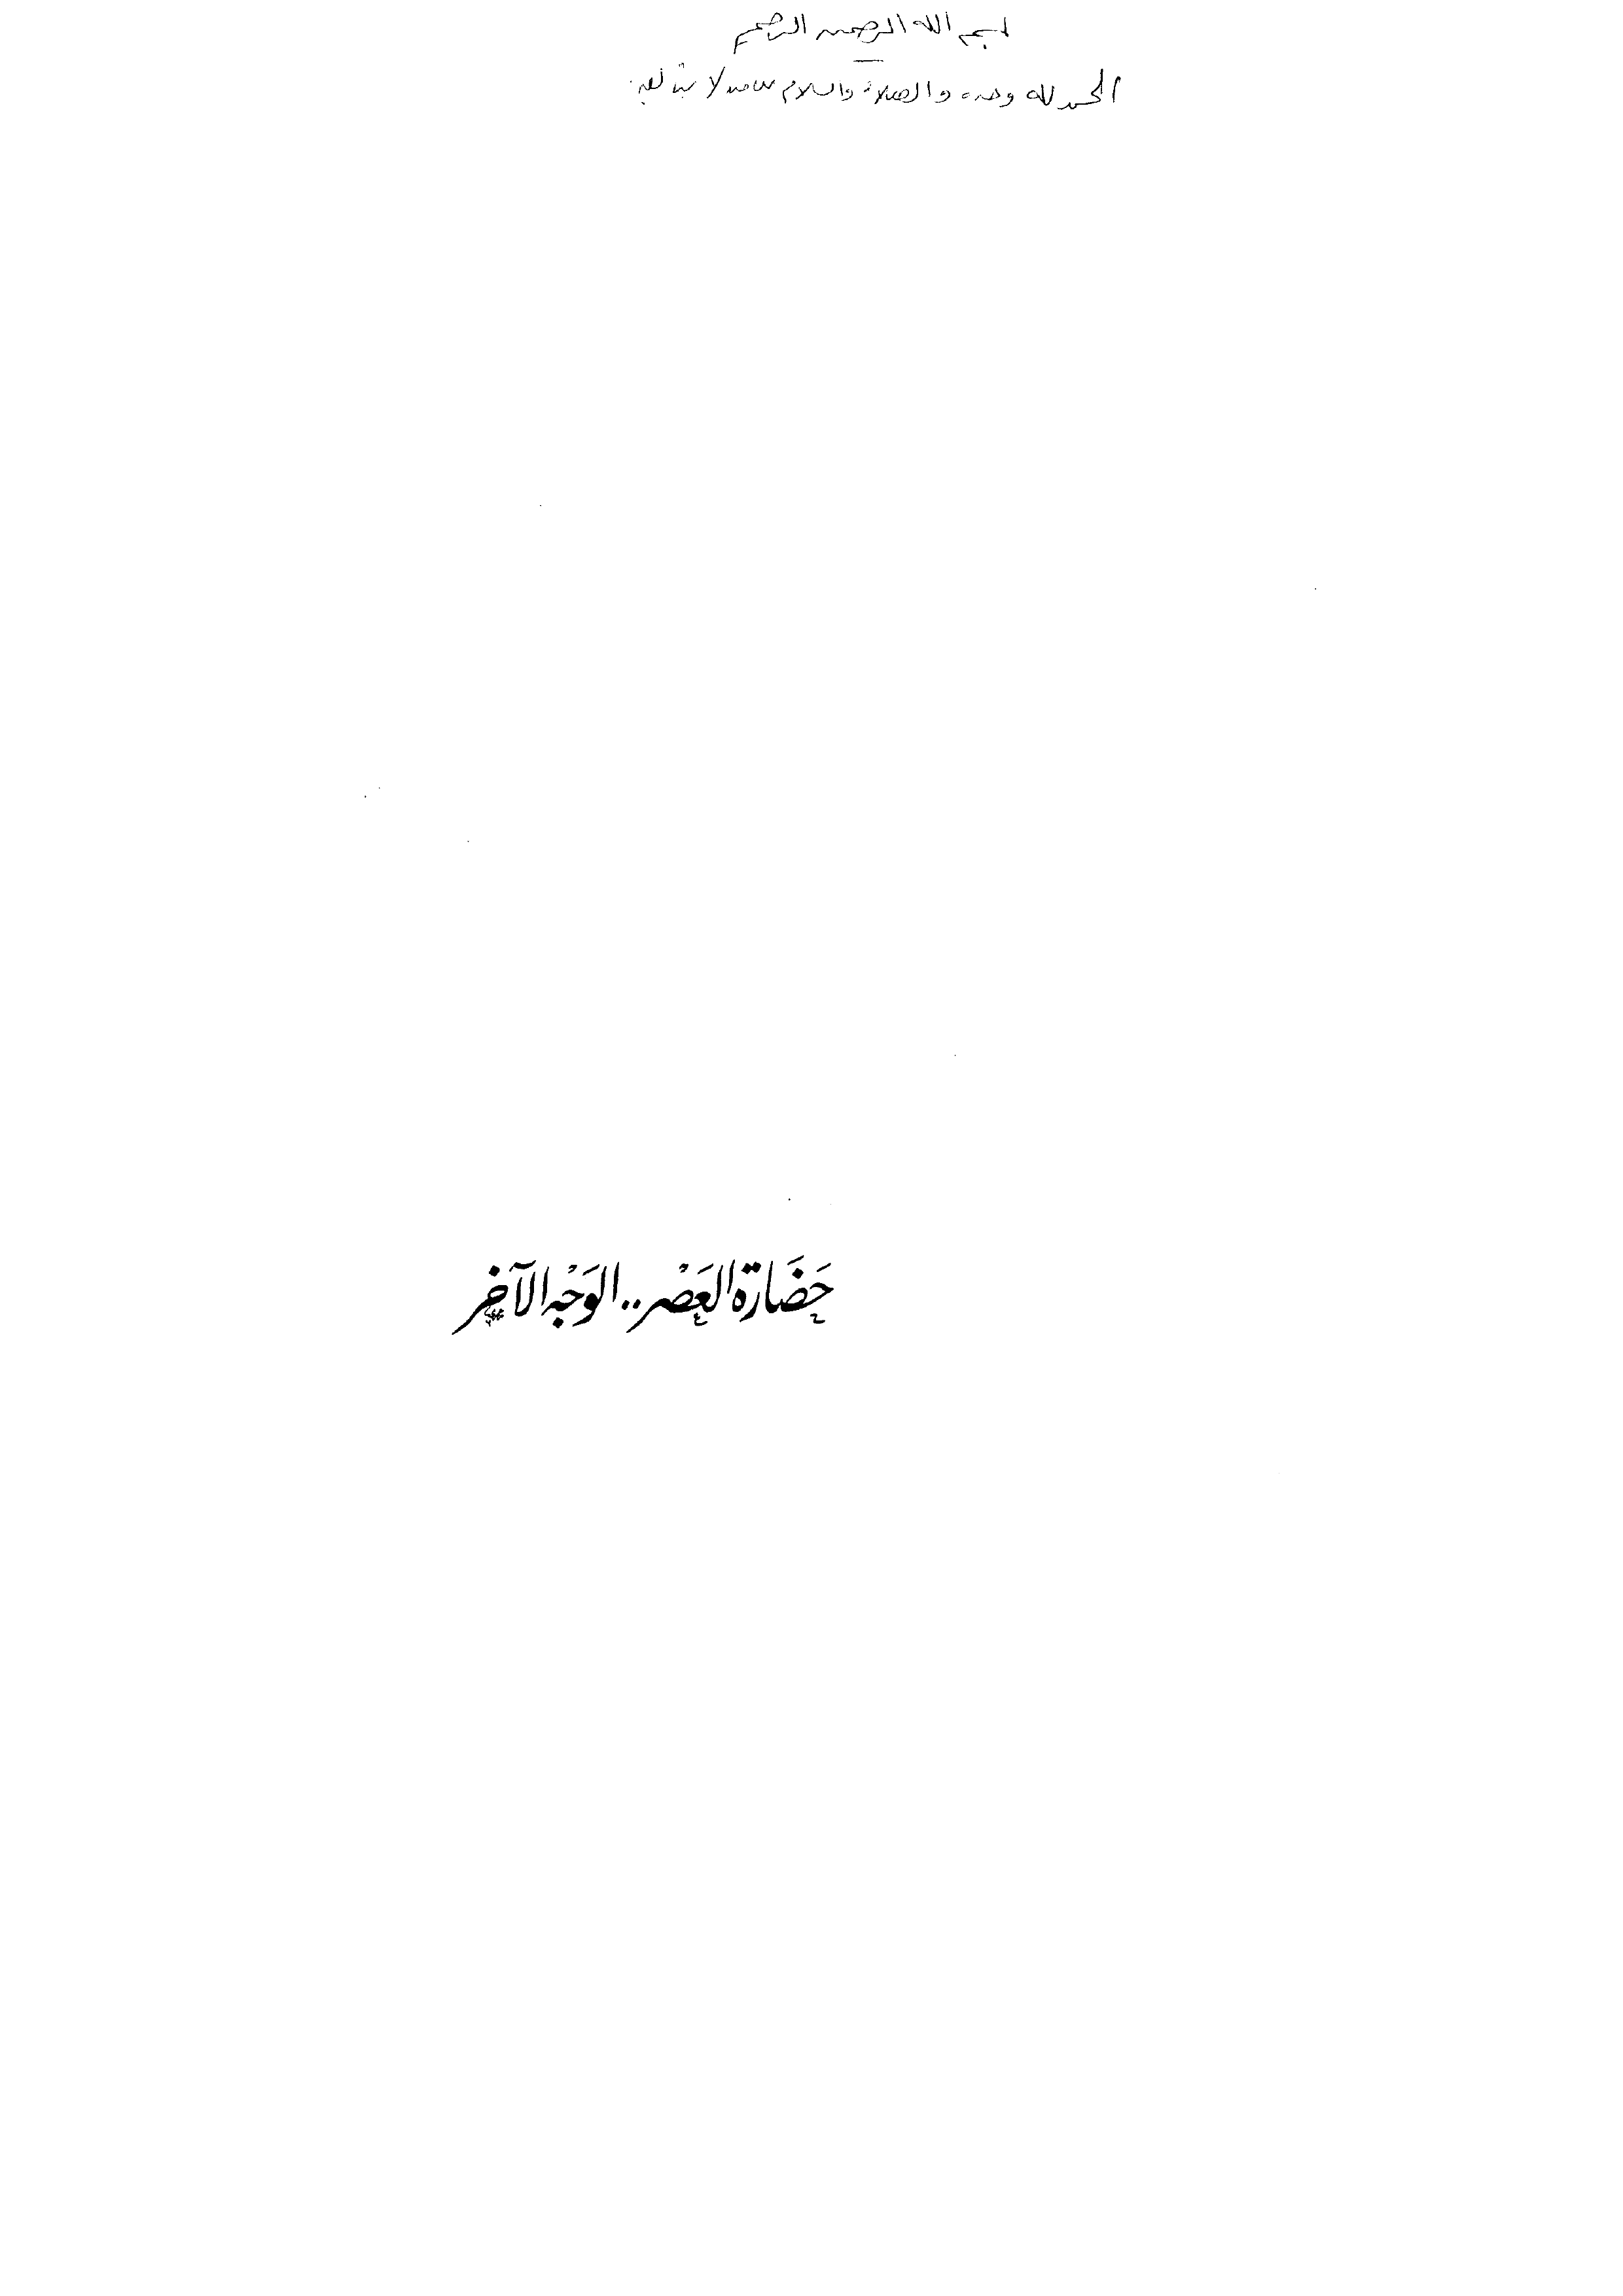 بسم الله الرحمن الرحيم
الحمد لله وحده والصلاة والسلام على من لا نبي بعده
حَضَارَة العَصْر .. الوَجْه الآخَر